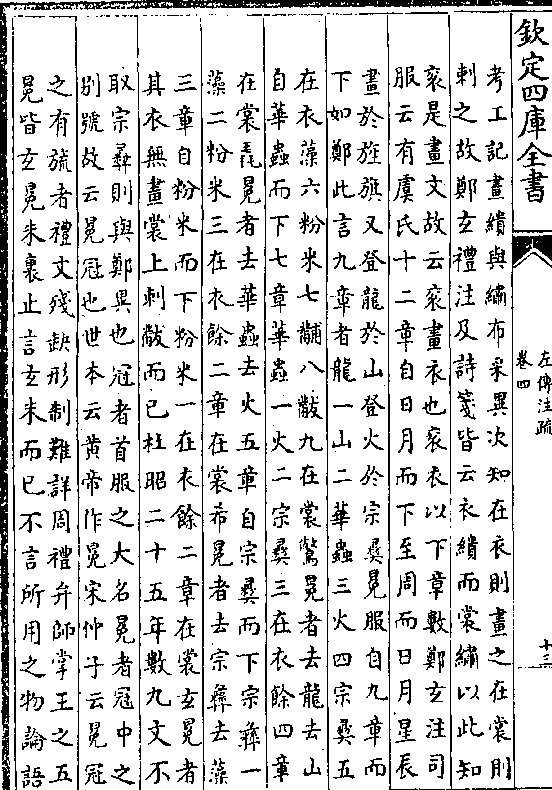 欽定四庫全書
左傳注疏
卷四
十三
考工記畫繢與繡布采異次知在衣則畫之在裳則
刺之故鄭玄禮注及詩箋皆云衣繢而裳繡以此知
袞是畫文故云袞畫衣也袞衣以下章數鄭玄注司
服云有虞氏十二章自日月而下至周而日月星辰
畫於旌旗又登龍於山登火於宗彝冕服自九章而
下如鄭此言九章者龍一山二華蟲三火四宗彝五
在衣藻六粉米七黼八黻九在裳鷩冕者去龍去山
自華蟲而下七章華蟲一火二宗彝三在衣餘四章
在裳毳冕者去華蟲去火五章自宗彝而下宗彝一
藻二粉米三在衣餘二章在裳希冕者去宗彝去藻
三章自粉米而下粉米一在衣餘二章在裳玄冕者
其衣無畫裳上刺黻而已杜昭二十五年數九文不
取宗彝則與鄭異也冠者首服之大名冕者冠中之
別號故云冕冠也世本云黃帝作冕宋仲子云冕冠
之有旒者禮文殘缺形制難詳周禮弁師掌王之五
冕皆玄冕朱裏止言玄朱而已不言所用之物論語